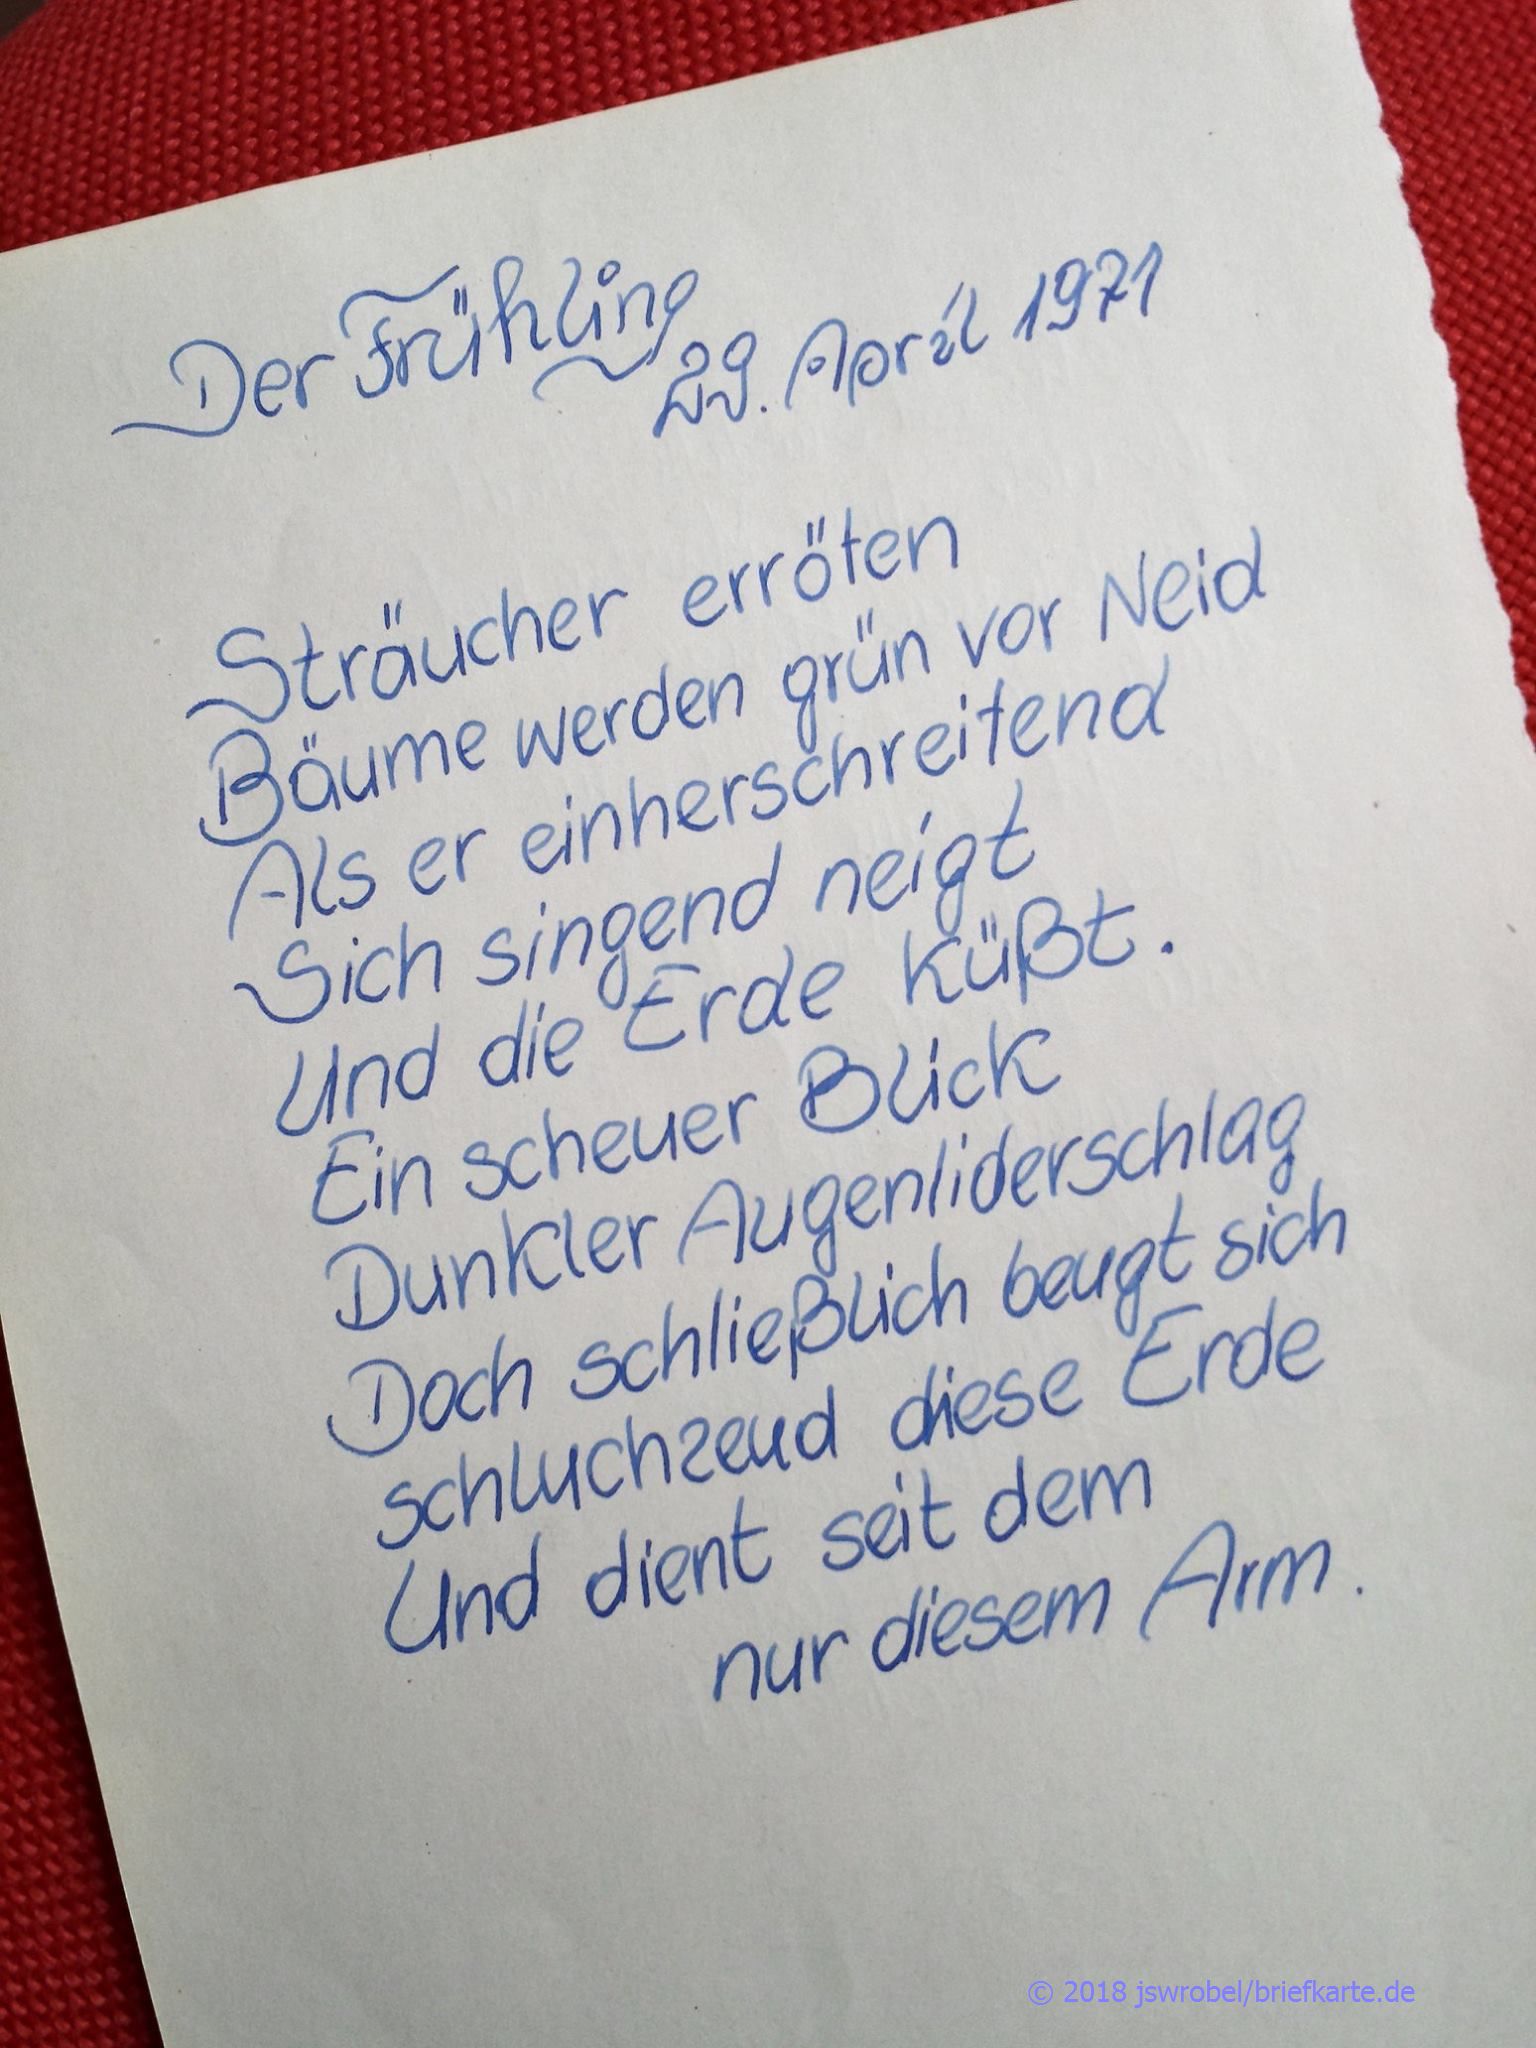 Der Frühling
29. April 1971
Sträucher erröten
Bäume werden grün vor Neid
Als er einherschreitend
Sich singend neigt
Und die Erde küßt.
Ein scheuer Blick
Dunkler Augenliderschlag
Doch schließlich beugt sich
schluchzend diese Erde
Und dient seit dem
nur diesem Arm.
© 2018 jswrobel/briefkarte.de